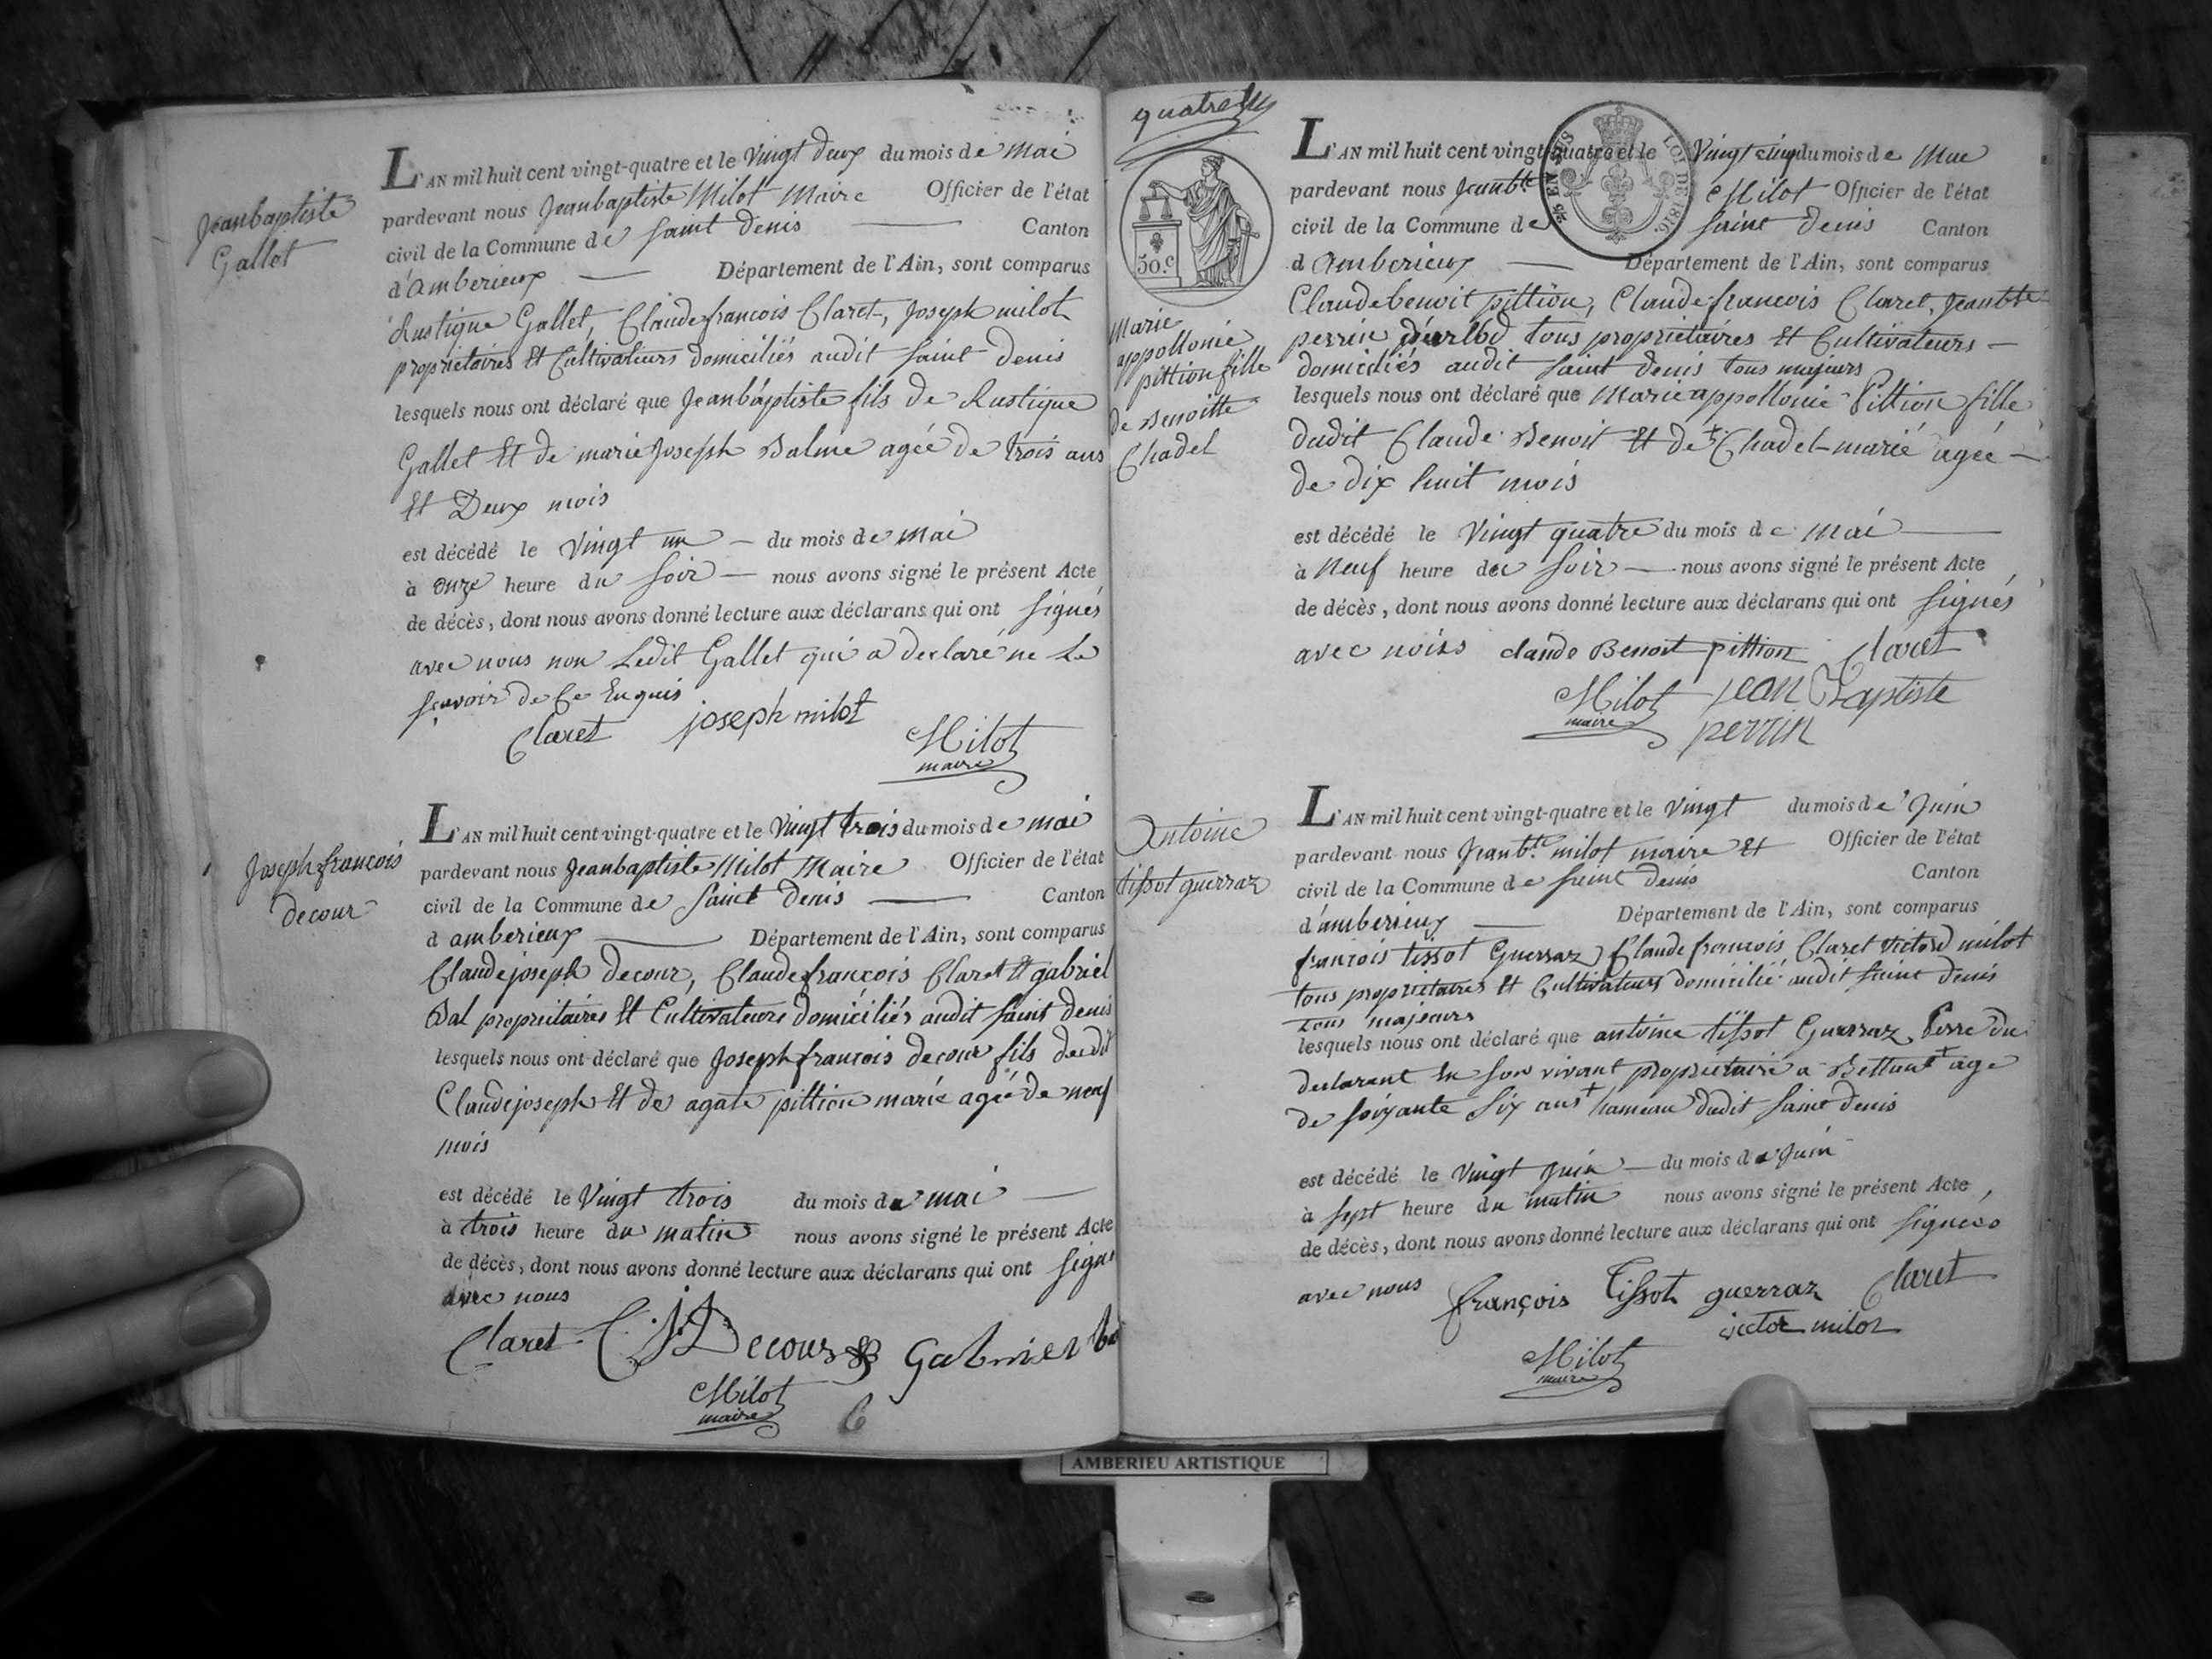 Jeanbaptiste
Gallet
L'AN mil huit cent vingt-quatre et le Vingt deux du mois de Mai
pardevant nous Jeanbaptiste Milot Maire Officier de l'état
civil de la Commune de saint Denis Canton
d'amberieux Département de l'Ain, sont comparus
Rustique Gallet, Claudefrancois Claret, Joseph milot
proprietaires Et Cultivateurs domiciliés audit saint denis
lesquels nous ont déclaré que Jeanbaptiste fils de Rustique
Gallet Et de marie Joseph Balme agée de trois ans
Et Deux mois
est décédé le vingt un du mois de mai
à onze heure du soir nous avons signé le présent Acte
de décès, dont nous avons donné lecture aux déclarans qui ont signés
avec nous non Ledit Gallet qui a declaré ne Le
sçavoir de Ce Enquis
Claret joseph milot
Milot
maire
Joseph francois
decour
L'AN mil huit cent vingt-quatre et le Vingt trois du mois de mai
pardevant nous Jeanbaptiste Milot Maire Officier de l'état
civil de la Commune de Saint Denis Canton
d amberieux Département de l'Ain, sont comparus
Claudejoseph decour, Claudefrançois Claret Et gabriel
Bal proprietaires Et Cultivateurs domiciliés audit saint denis
lesquels nous ont déclaré que Joseph francois decour fils dudit
Claudejoseph Et de agate pittion marié agée de neuf
mois
est décédé le Vingt trois du mois de mai
à trois heure du matin nous avons signé le présent Acte
de décès, dont nous avons donné lecture aux déclarans qui ont
avec nous
Claret C. j. Decour Gabriel
Milot
maire
quatre
50.c
LOI DE 1816.
Marie
appollonie
pittion fille
de Benoitte
Chadel
L'AN mil huit cent vingt-quatre et le Vingt cinq du mois de Mai
pardevant nous Jeanbte Milot Officier de l'état
civil de la Commune de saint Denis Canton
d amberieux Département de l'Ain, sont comparus
Claudebenoit pittion, Claudefrancois Claret, Jeanbte
perrin tous proprietaires Et Cultivateurs
domiciliés audit saint denis tous majeurs
lesquels nous ont déclaré que Marie appollonie Pittion fille
dudit Claude Benoit Et de Chadel marié agée
de dix huit mois
est décédé le Vingt quatre du mois de Mai
à Neuf heure du soir nous avons signé le présent Acte
de décès, dont nous avons donné lecture aux déclarans qui ont signés
avec nous claude Benoit pittion Claret
Milot jean Baptiste
maire perrin
Antoine
tissot guerraz
L'AN mil huit cent vingt-quatre et le Vingt du mois de Juin
pardevant nous Jeanbte milot maire Et Officier de l'état
civil de la Commune de saint denis Canton
d'amberieux Département de l'Ain, sont comparus
francois tissot Guerraz, Claudefrancois Claret victord milot
tous proprietaires Et Cultivateurs domicilié audit saint denis
tous majeurs
lesquels nous ont déclaré que antoine tissot Guerraz Perre du
declarant En son vivant proprietaire a Bettant age
de soixante six ans hameau dudit saint denis
est décédé le vingt juin du mois de Juin
à sept heure du matin nous avons signé le présent Acte
de décès, dont nous avons donné lecture aux déclarans qui ont signés
avec nous françois Tissot guerraz Claret
victor milot
Milot
maire
AMBERIEU ARTISTIQUE